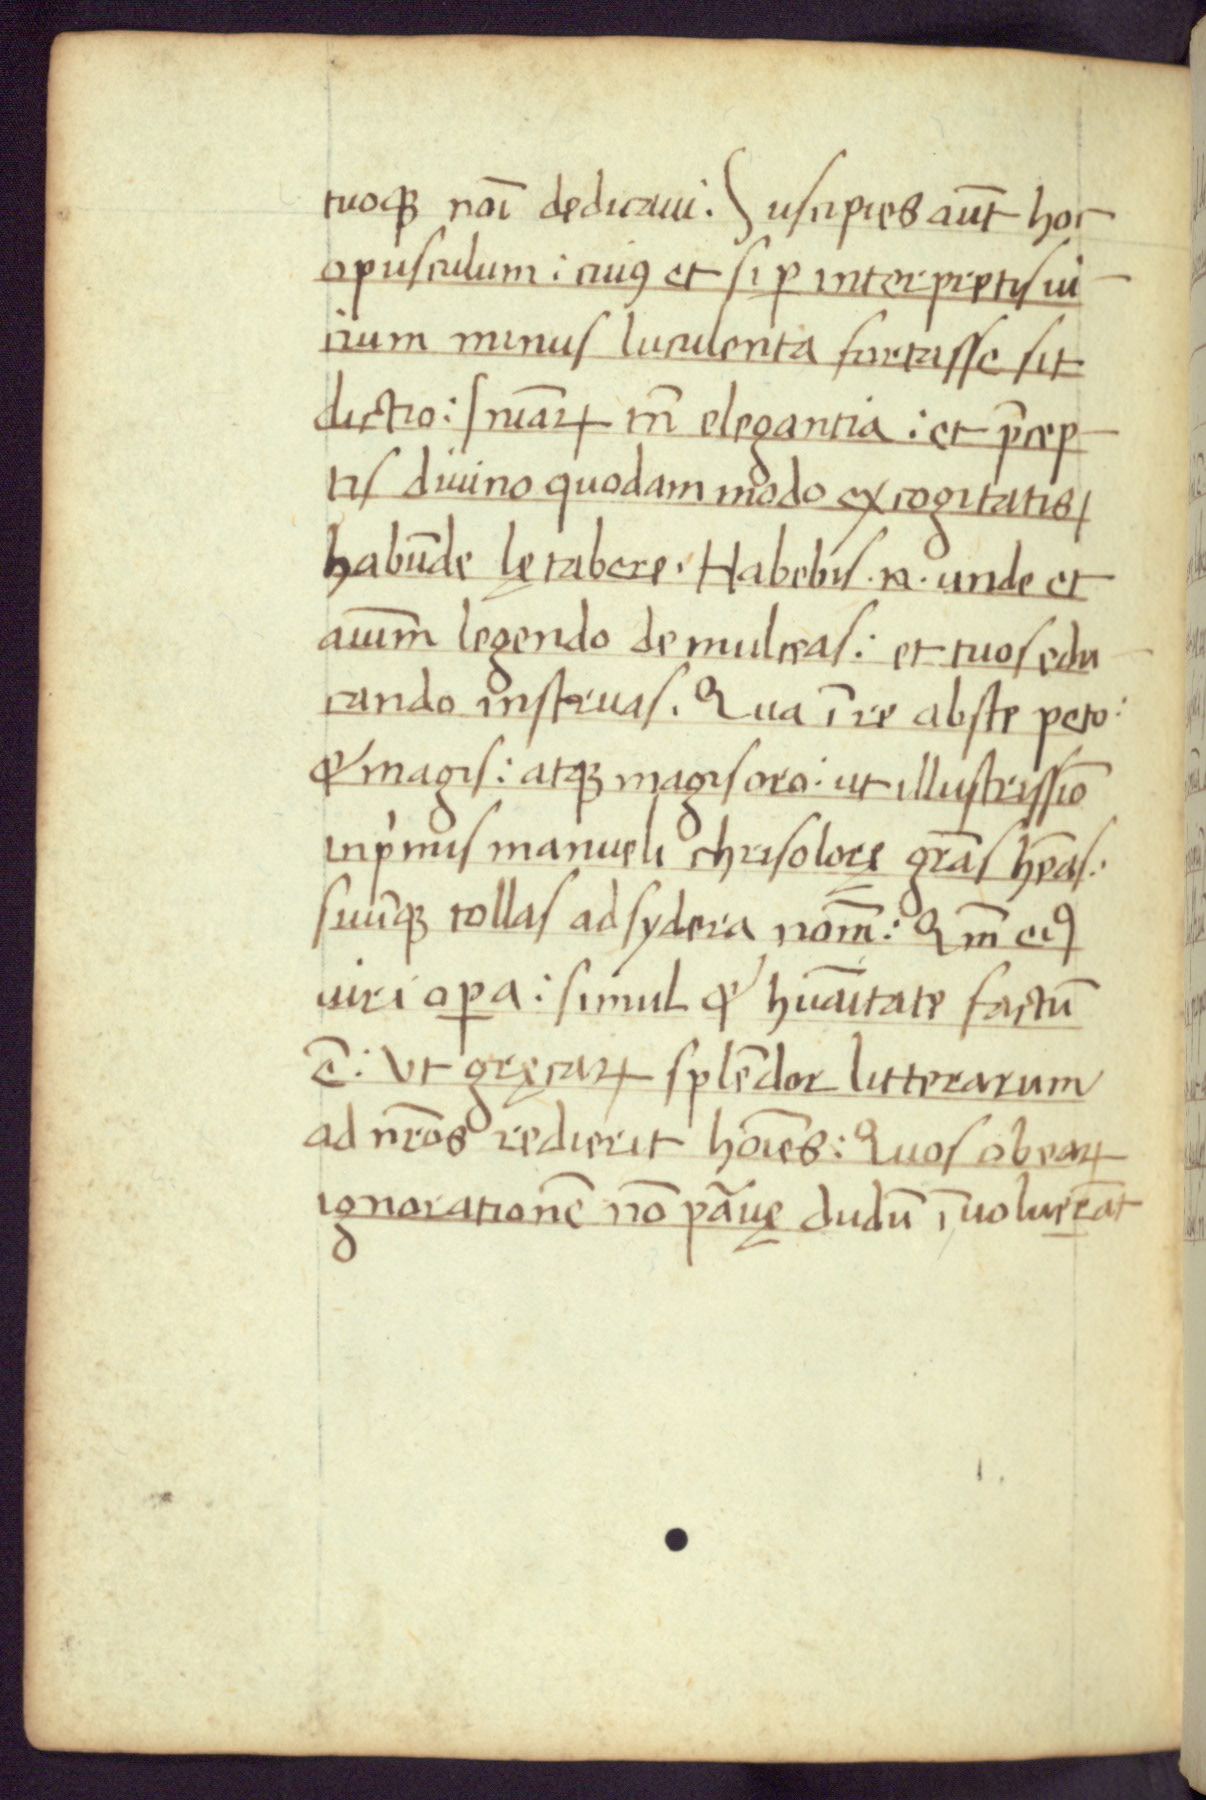 tuoqꝫ noī dedicaui. Suscipies aūt hoc
opusculum: cuiꝰ et si ꝑ interpretis ui
cium minus luculenta fortasse sit
dictio: sniaꝝ tn̄ elegantia: et p̄cep
tis diuino quodam modo excogitatis,
habūde lętabere. Habebis .n. unde et
auim̄ legendo demulceas: et tuos edu
cando instruas. Qua ī re abs te peto:
ꝙ magis: atqꝫ magis oro: ut illustrissīo
inp'mis manueli chrisolorę grās hēas:
suūqꝫ tollas ad sydera nom̄: Qm̄ eiꝰ
uiri oꝑa: simul ꝙ huāitate factū
ē: Vt gręcaꝝ splēdor litterarum
ad nr̄os redierit hoīes: Quos obcaꝝ
ignorationē nō pāuę dudū īuoluerēat